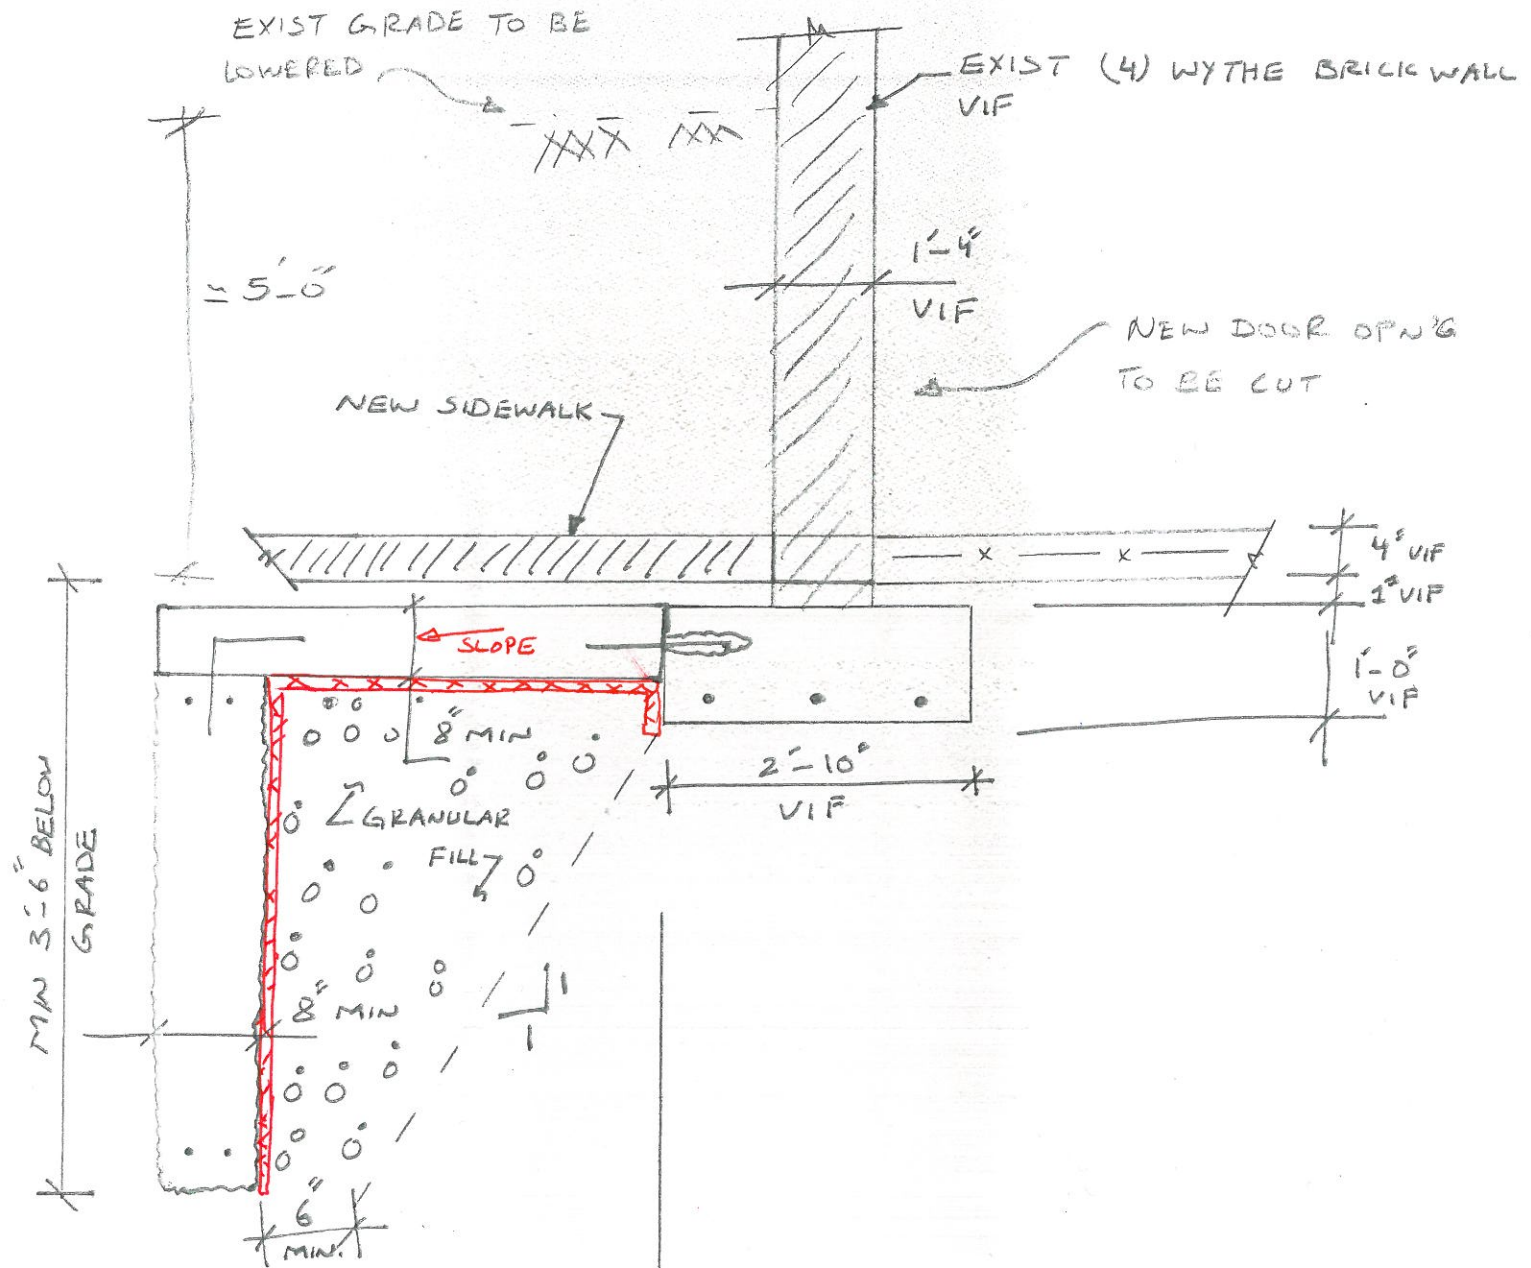 EXIST GRADE TO BE
LOWERED
EXIST (4) WYTHE BRICK WALL
VIF
≃ 5'-0"
1'-4"
VIF
NEW DOOR OPN'G
TO BE CUT
NEW SIDEWALK
4" VIF
1" VIF
1'-0"
VIF
SLOPE
8" MIN
2'-10"
VIF
GRANULAR
FILL
MIN 3'-6" BELOW
GRADE
8" MIN
1
1
6"
MIN.